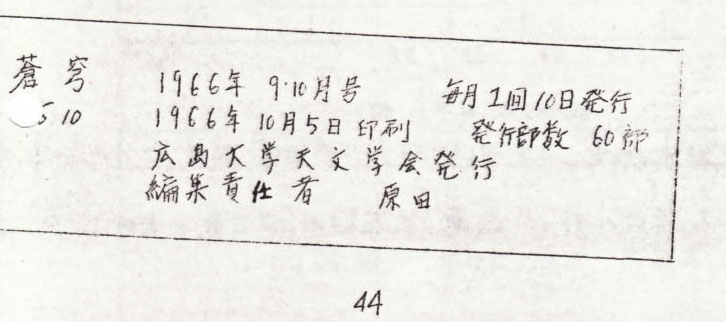 蒼穹 1966年 9・10月号 毎月1回10日発行
10 1966年10月5日印刷 発行部数 60部
広島大学天文学会発行
編集責任者 原田
44